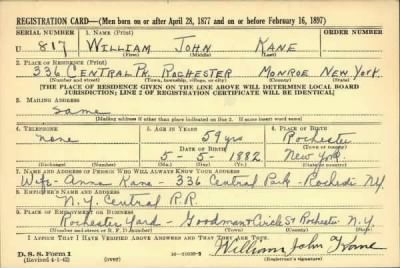 REGISTRATION CARD—(Men born on or after April 28, 1877 and on or before February 16, 1897)
SERIAL NUMBER 1. NAME (Print) ORDER NUMBER
U 817 WILLIAM JOHN KANE
(First) (Middle) (Last)
2. PLACE OF RESIDENCE (Print)
336 CENTRAL PK. ROCHESTER MONROE NEW YORK
(Number and street) (Town, township, village, or city) (County) (State)
[THE PLACE OF RESIDENCE GIVEN ON THE LINE ABOVE WILL DETERMINE LOCAL BOARD
JURISDICTION; LINE 2 OF REGISTRATION CERTIFICATE WILL BE IDENTICAL]
3. MAILING ADDRESS
Same
[Mailing address if other than place indicated on line 2. If same insert word same]
4. TELEPHONE 5. AGE IN YEARS 6. PLACE OF BIRTH
none 59 yrs Rochester
DATE OF BIRTH (Town or county)
5 - 5 - 1882 New York
(Exchange) (Number) (Mo.) (Day) (Yr.) (State or country)
7. NAME AND ADDRESS OF PERSON WHO WILL ALWAYS KNOW YOUR ADDRESS
Wife - Anna Kane - 336 Central Park - N.Y.
8. EMPLOYER'S NAME AND ADDRESS
N.Y. Central R.R.
9. PLACE OF EMPLOYMENT OR BUSINESS
Rochester Yard - Goodman & Circle St Rochester N.Y.
(Number and street or R. F. D. number) (Town) (County) (State)
I AFFIRM THAT I HAVE VERIFIED ABOVE ANSWERS AND THAT THEY ARE TRUE.
William John Kane
D. S. S. Form 1
(Revised 4-1-42) (over) (Registrant's signature)